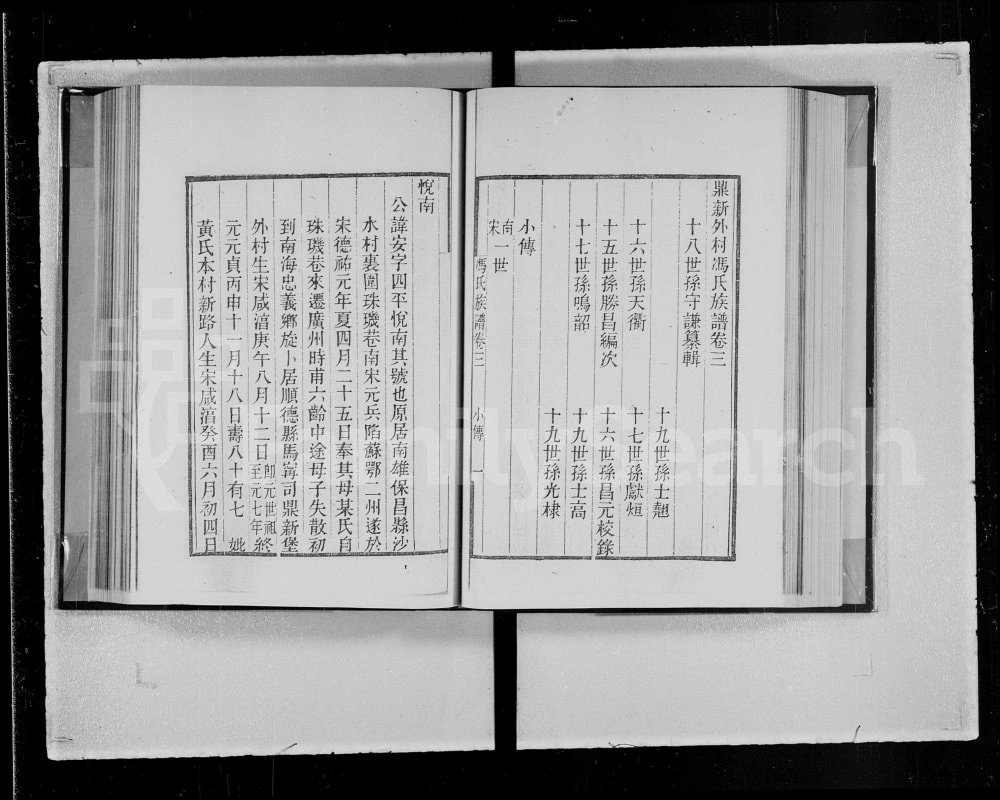 鼎新外村馮氏族譜卷三
十八世孫守謙纂輯
十九世孫士翹
十六世孫天衢
十七世孫獻烜
十五世孫勝昌編次
十六世孫昌元校錄
十七世孫鳴韶
十九世孫士高
十九世孫光棣
小傳
南宋一世
馮氏族譜卷三
小傳
一
悅南
公諱安字四平悅南其號也原居南雄保昌縣沙
水村裏圍珠璣巷南宋元兵陷蘇鄂二州遂於
宋德祐元年夏四月二十五日奉其母某氏自
珠璣巷來遷廣州時甫六齡中途母子失散初
到南海忠義鄉旋卜居順德縣馬寗司鼎新堡
外村生宋咸淯庚午八月十二日即元世祖至元七年終
元元貞丙申十一月十八日壽八十有七 妣
黃氏本村新路人生宋咸淯癸酉六月初四日
FamilySearch